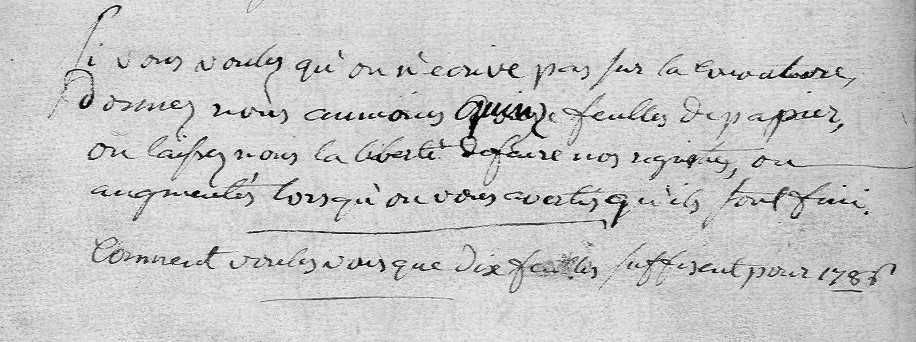 Si vous voules qu'on n'ecrive pas sur la couverture,
Donnez nous aumoins quinze feuilles de papier,
ou laissez nous la liberté de faire nos registres, ou
augmentés lorsqu'on vous avertis qu'ils sont fini.
Comment voules vous que dix feuilles suffisent pour 1786